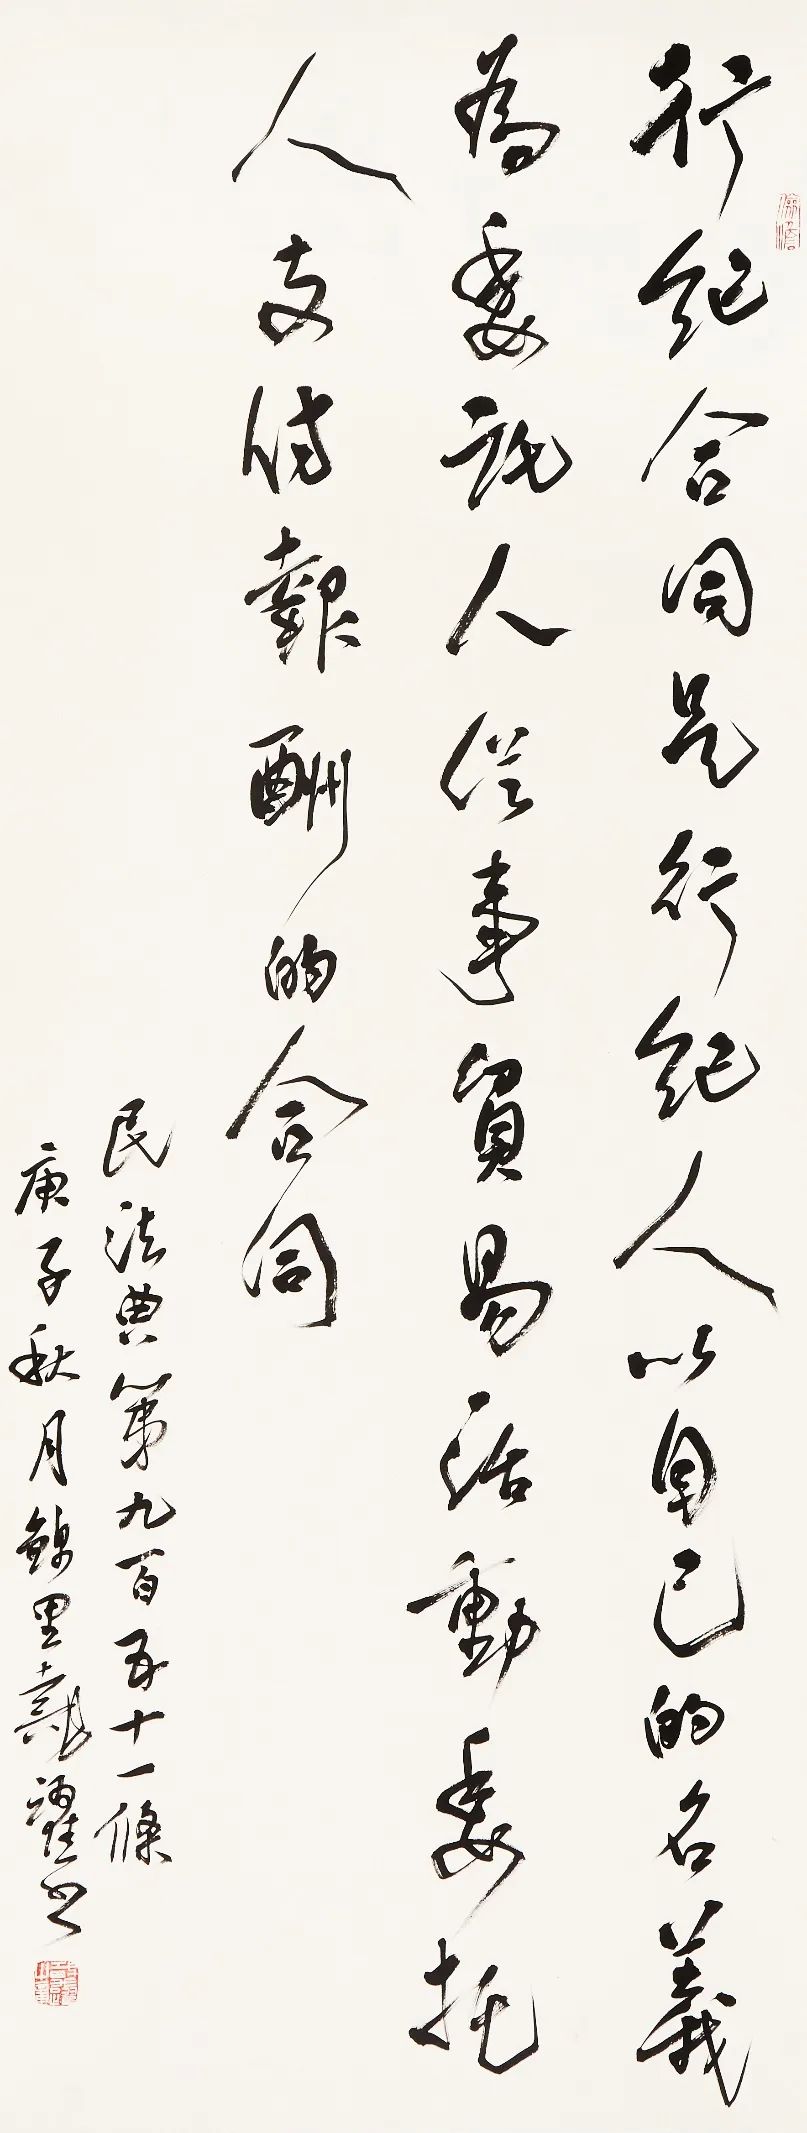 行紀合同是行紀人以自己的名義
為委託人從事貿易活動委托
人支付報酬的合同
民法典第九百五十一條
庚子秋月錦里戴躍書